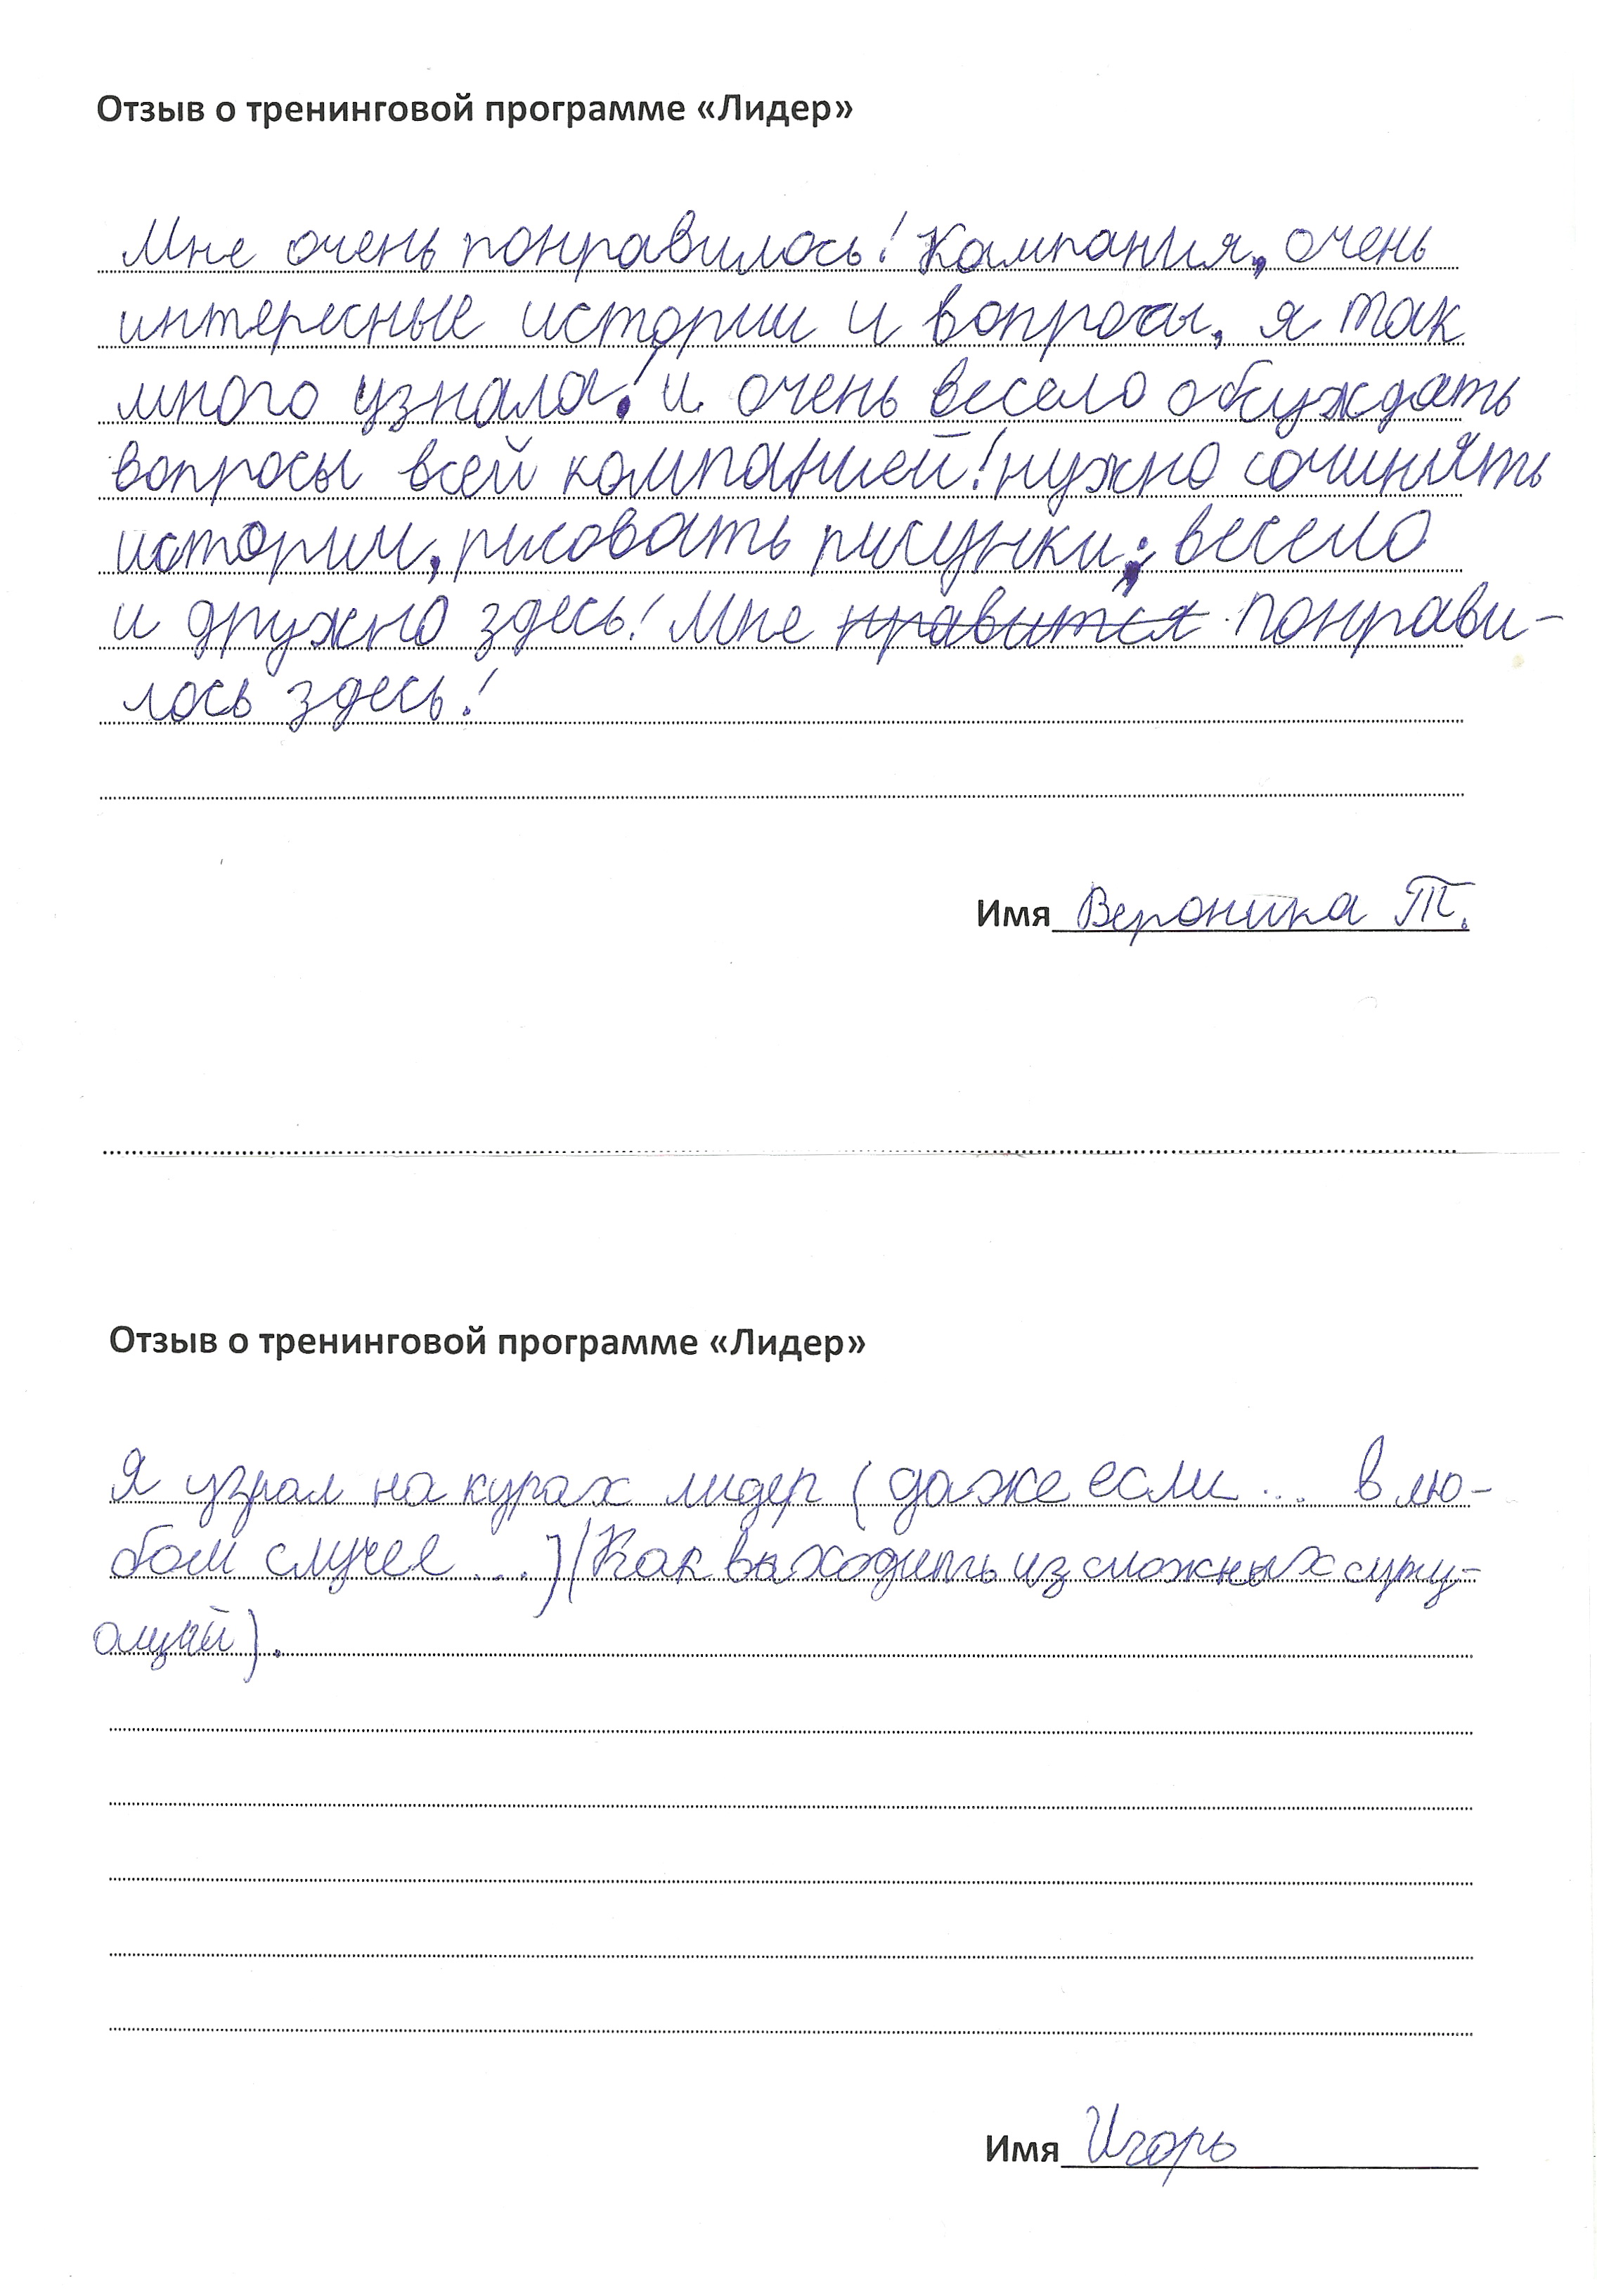 Отзыв о тренинговой программе «Лидер»
Мне очень понравилось! Кампания, очень
интересные истории и вопросы, я так
много узнала! и очень весело обсуждать
вопросы всей компанией! нужно сочинять
истории, рисовать рисунки; весело
и дружно здесь! Мне нравится понрави-
лось здесь!
Имя Вероника Т.
Отзыв о тренинговой программе «Лидер»
Я узнал на курах лидер (даже если ... в лю-
бом случее ...) (Как выходить из сложных
аций).
Имя Игорь